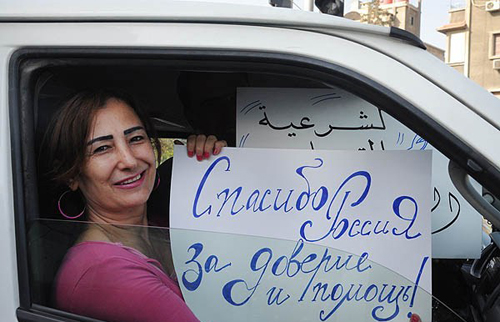 لشرعية
Спасибо Россия
За доверие
и помощь!